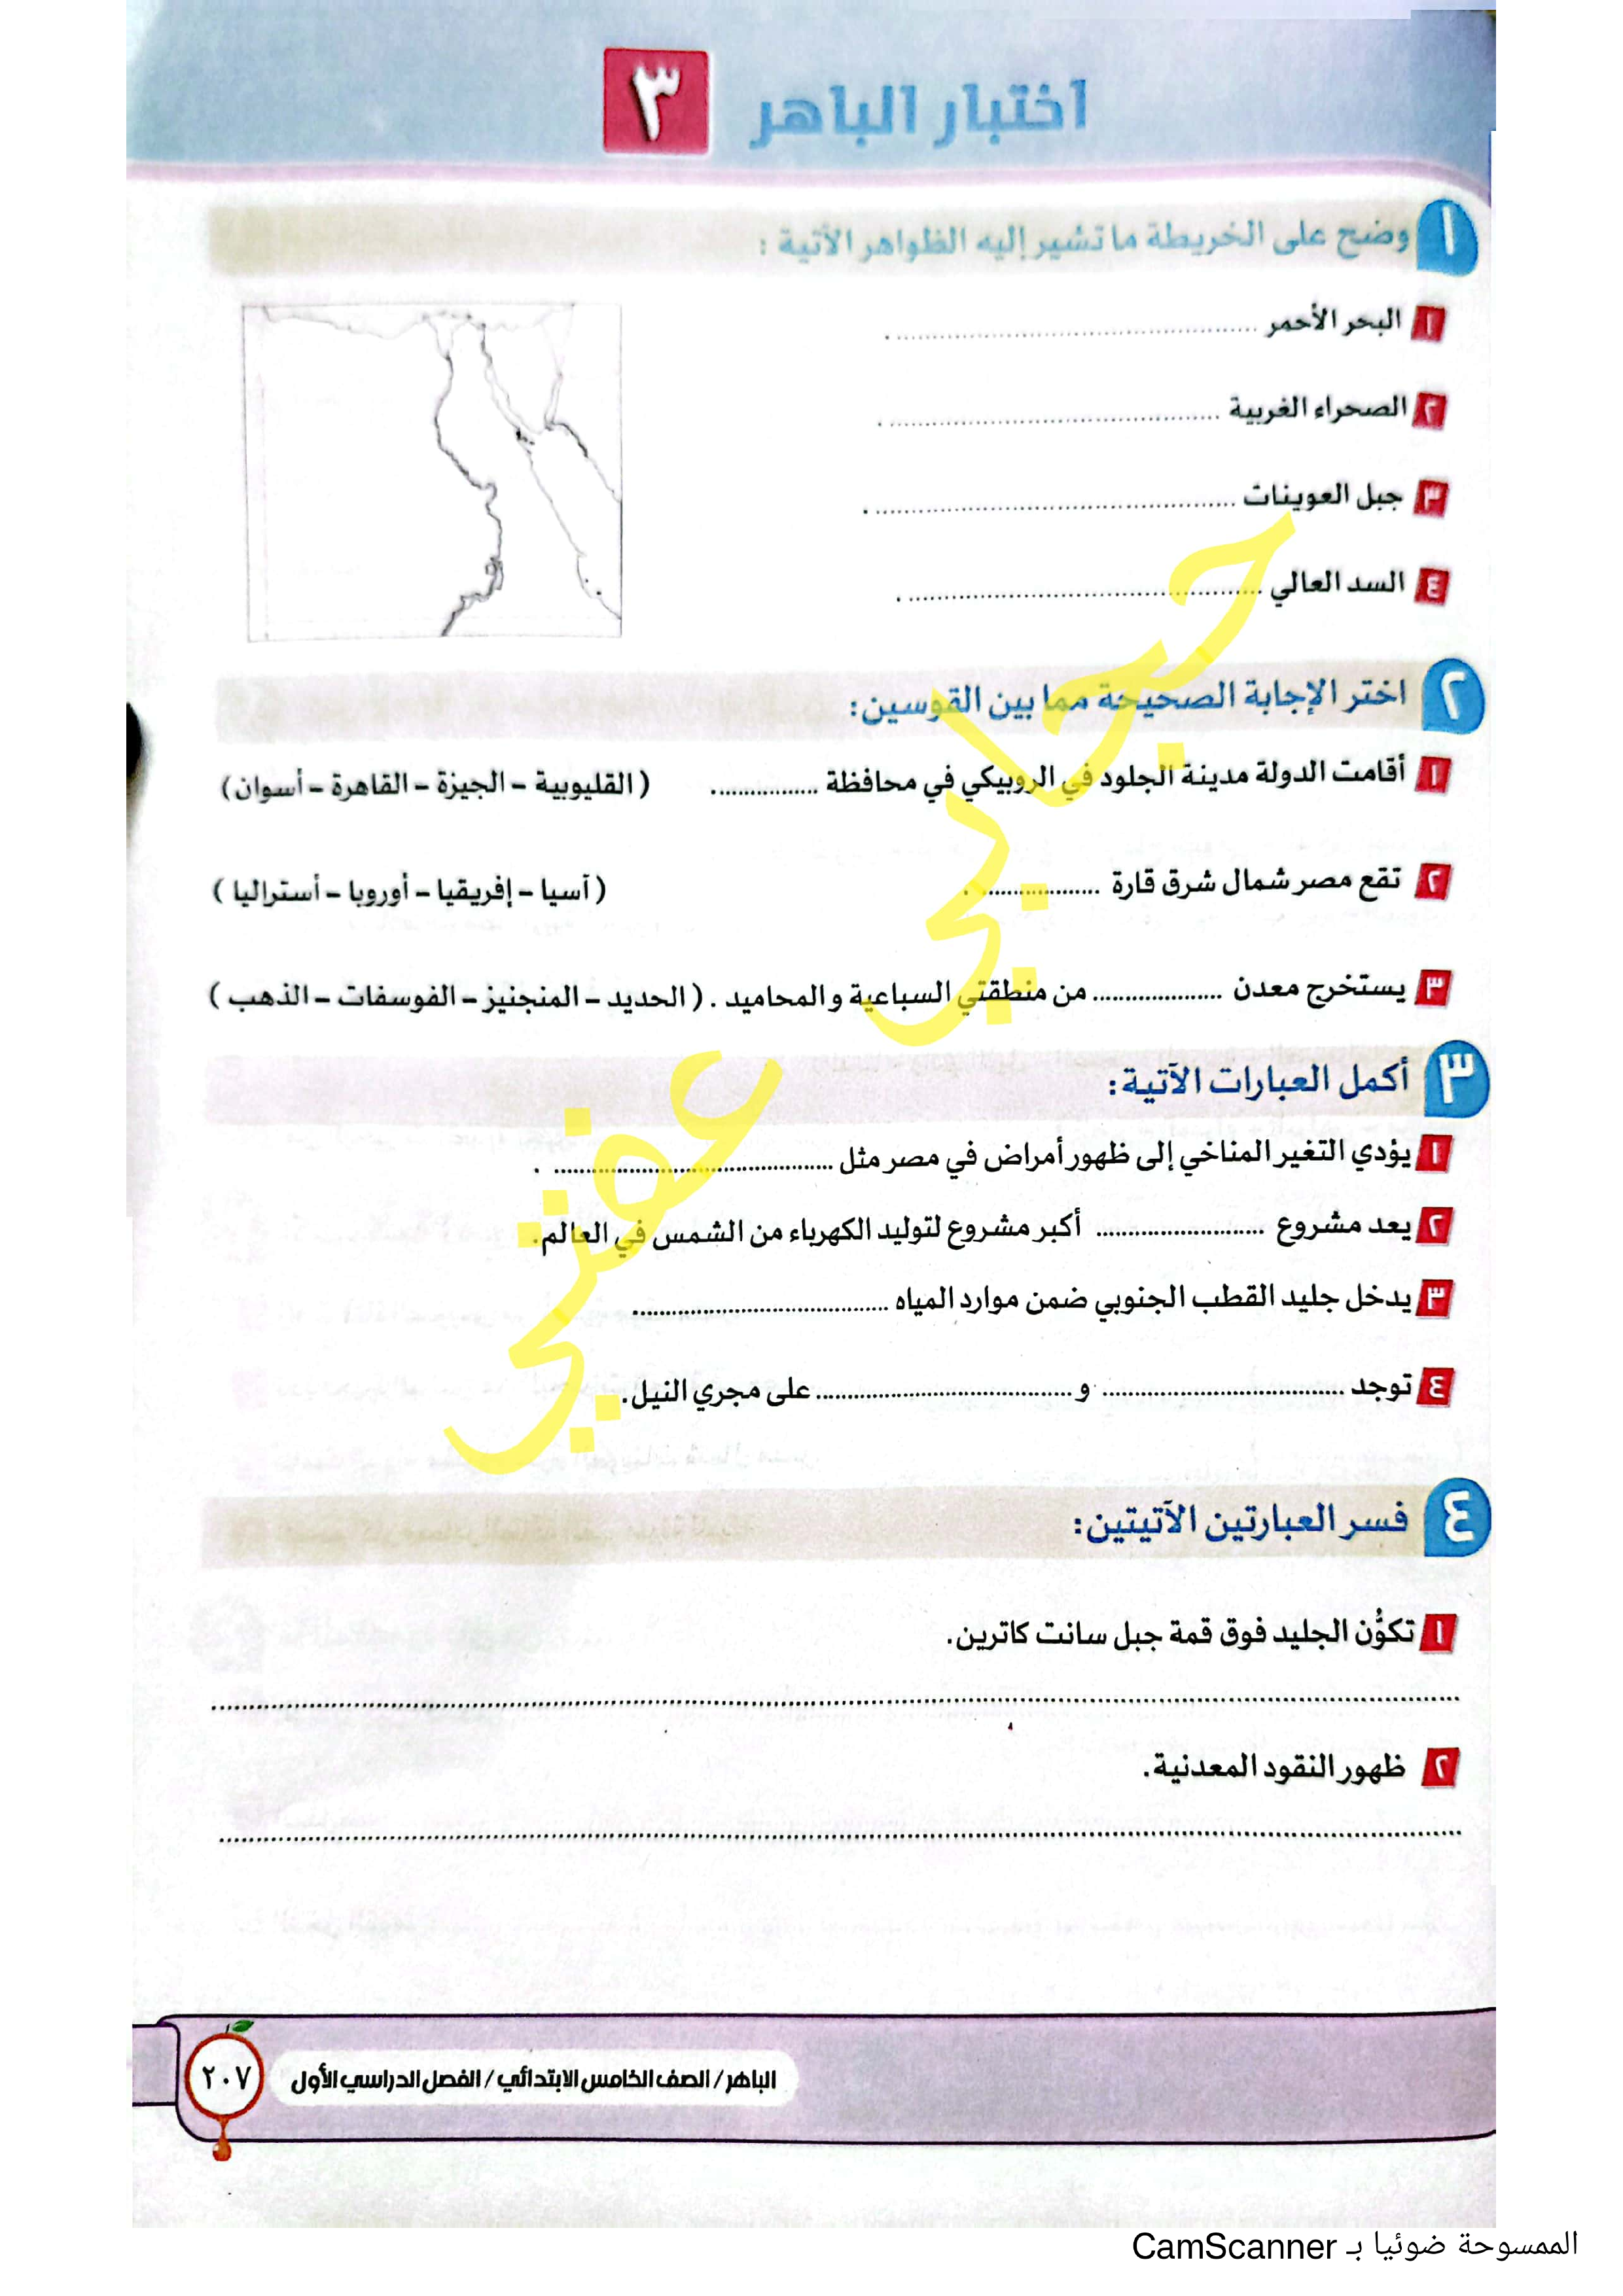 اختبار الباهر ٣
١ وضح على الخريطة ما تشير إليه الظواهر الآتية :
١ البحر الأحمر ........................................ .
٢ الصحراء الغربية ........................................ .
٣ جبل العوينات ........................................ .
٤ السد العالي ........................................ .
٢ اختر الإجابة الصحيحة مما بين القوسين:
١ أقامت الدولة مدينة الجلود في الروبيكي في محافظة ................. ( القليوبية – الجيزة – القاهرة – أسوان )
٢ تقع مصر شمال شرق قارة ................. . ( آسيا – إفريقيا – أوروبا – أستراليا )
٣ يستخرج معدن .................... من منطقتي السباعية والمحاميد . ( الحديد – المنجنيز – الفوسفات – الذهب )
٣ أكمل العبارات الآتية:
١ يؤدي التغير المناخي إلى ظهور أمراض في مصر مثل ........................................ .
٢ يعد مشروع .......................... أكبر مشروع لتوليد الكهرباء من الشمس في العالم.
٣ يدخل جليد القطب الجنوبي ضمن موارد المياه ........................................
٤ توجد ..................................... و ....................................... على مجري النيل.
٤ فسر العبارتين الآتيتين:
١ تكوُّن الجليد فوق قمة جبل سانت كاترين.
........................................
٢ ظهور النقود المعدنية.
........................................
حجابي عفتي
الباهر / الصف الخامس الابتدائي / الفصل الدراسي الأول
٢٠٧
الممسوحة ضوئيا بـ CamScanner